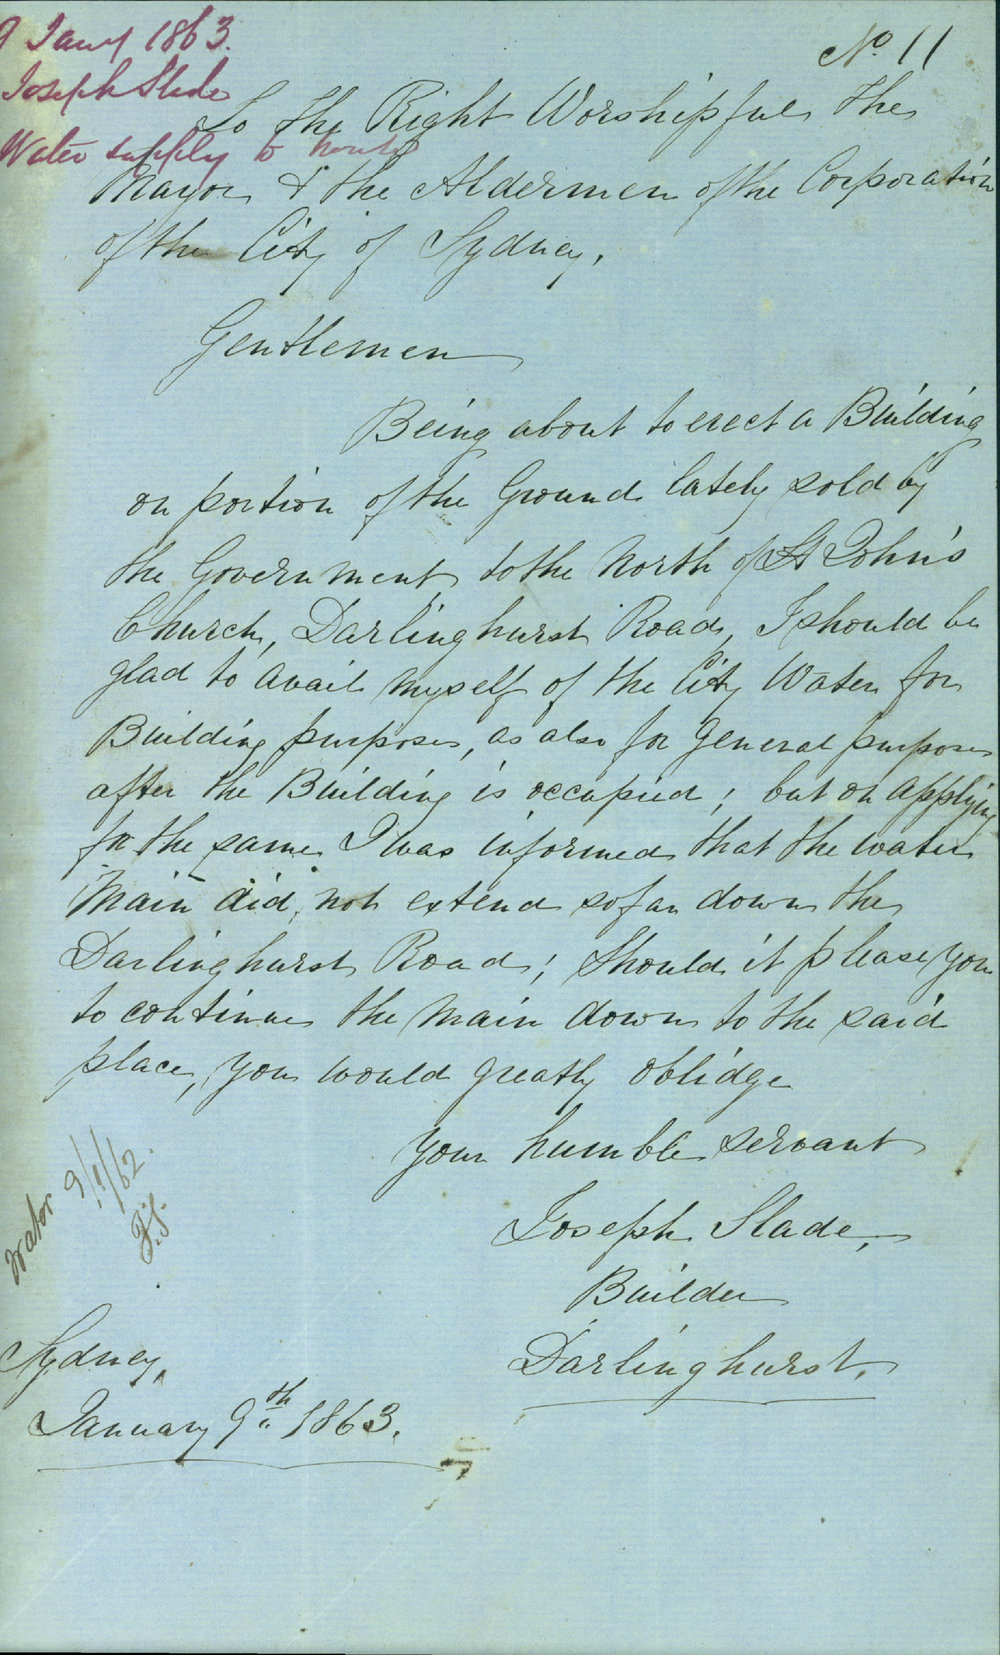 9 Jany 1863.
Joseph Slade
Water supply to house
No. 11
To the Right Worshipful the
Mayor & the Aldermen of the Corporation
of the City of Sydney.
Gentlemen
Being about to erect a Building
on portion of the Ground lately sold by
the Government to the North of St John's
Church, Darlinghurst Road, I should be
glad to avail myself of the City Water for
Building purposes, as also for general purposes
after the Building is occupied; but on applying
for the same I was informed that the water
Main did not extend so far down the
Darlinghurst Road; Should it please you
to continue the Main down to the said
place, you would greatly oblidge
your humble servant
Joseph Slade,
Builder
Darlinghurst.
Water 9/1/62.
Sydney,
January 9th 1863.